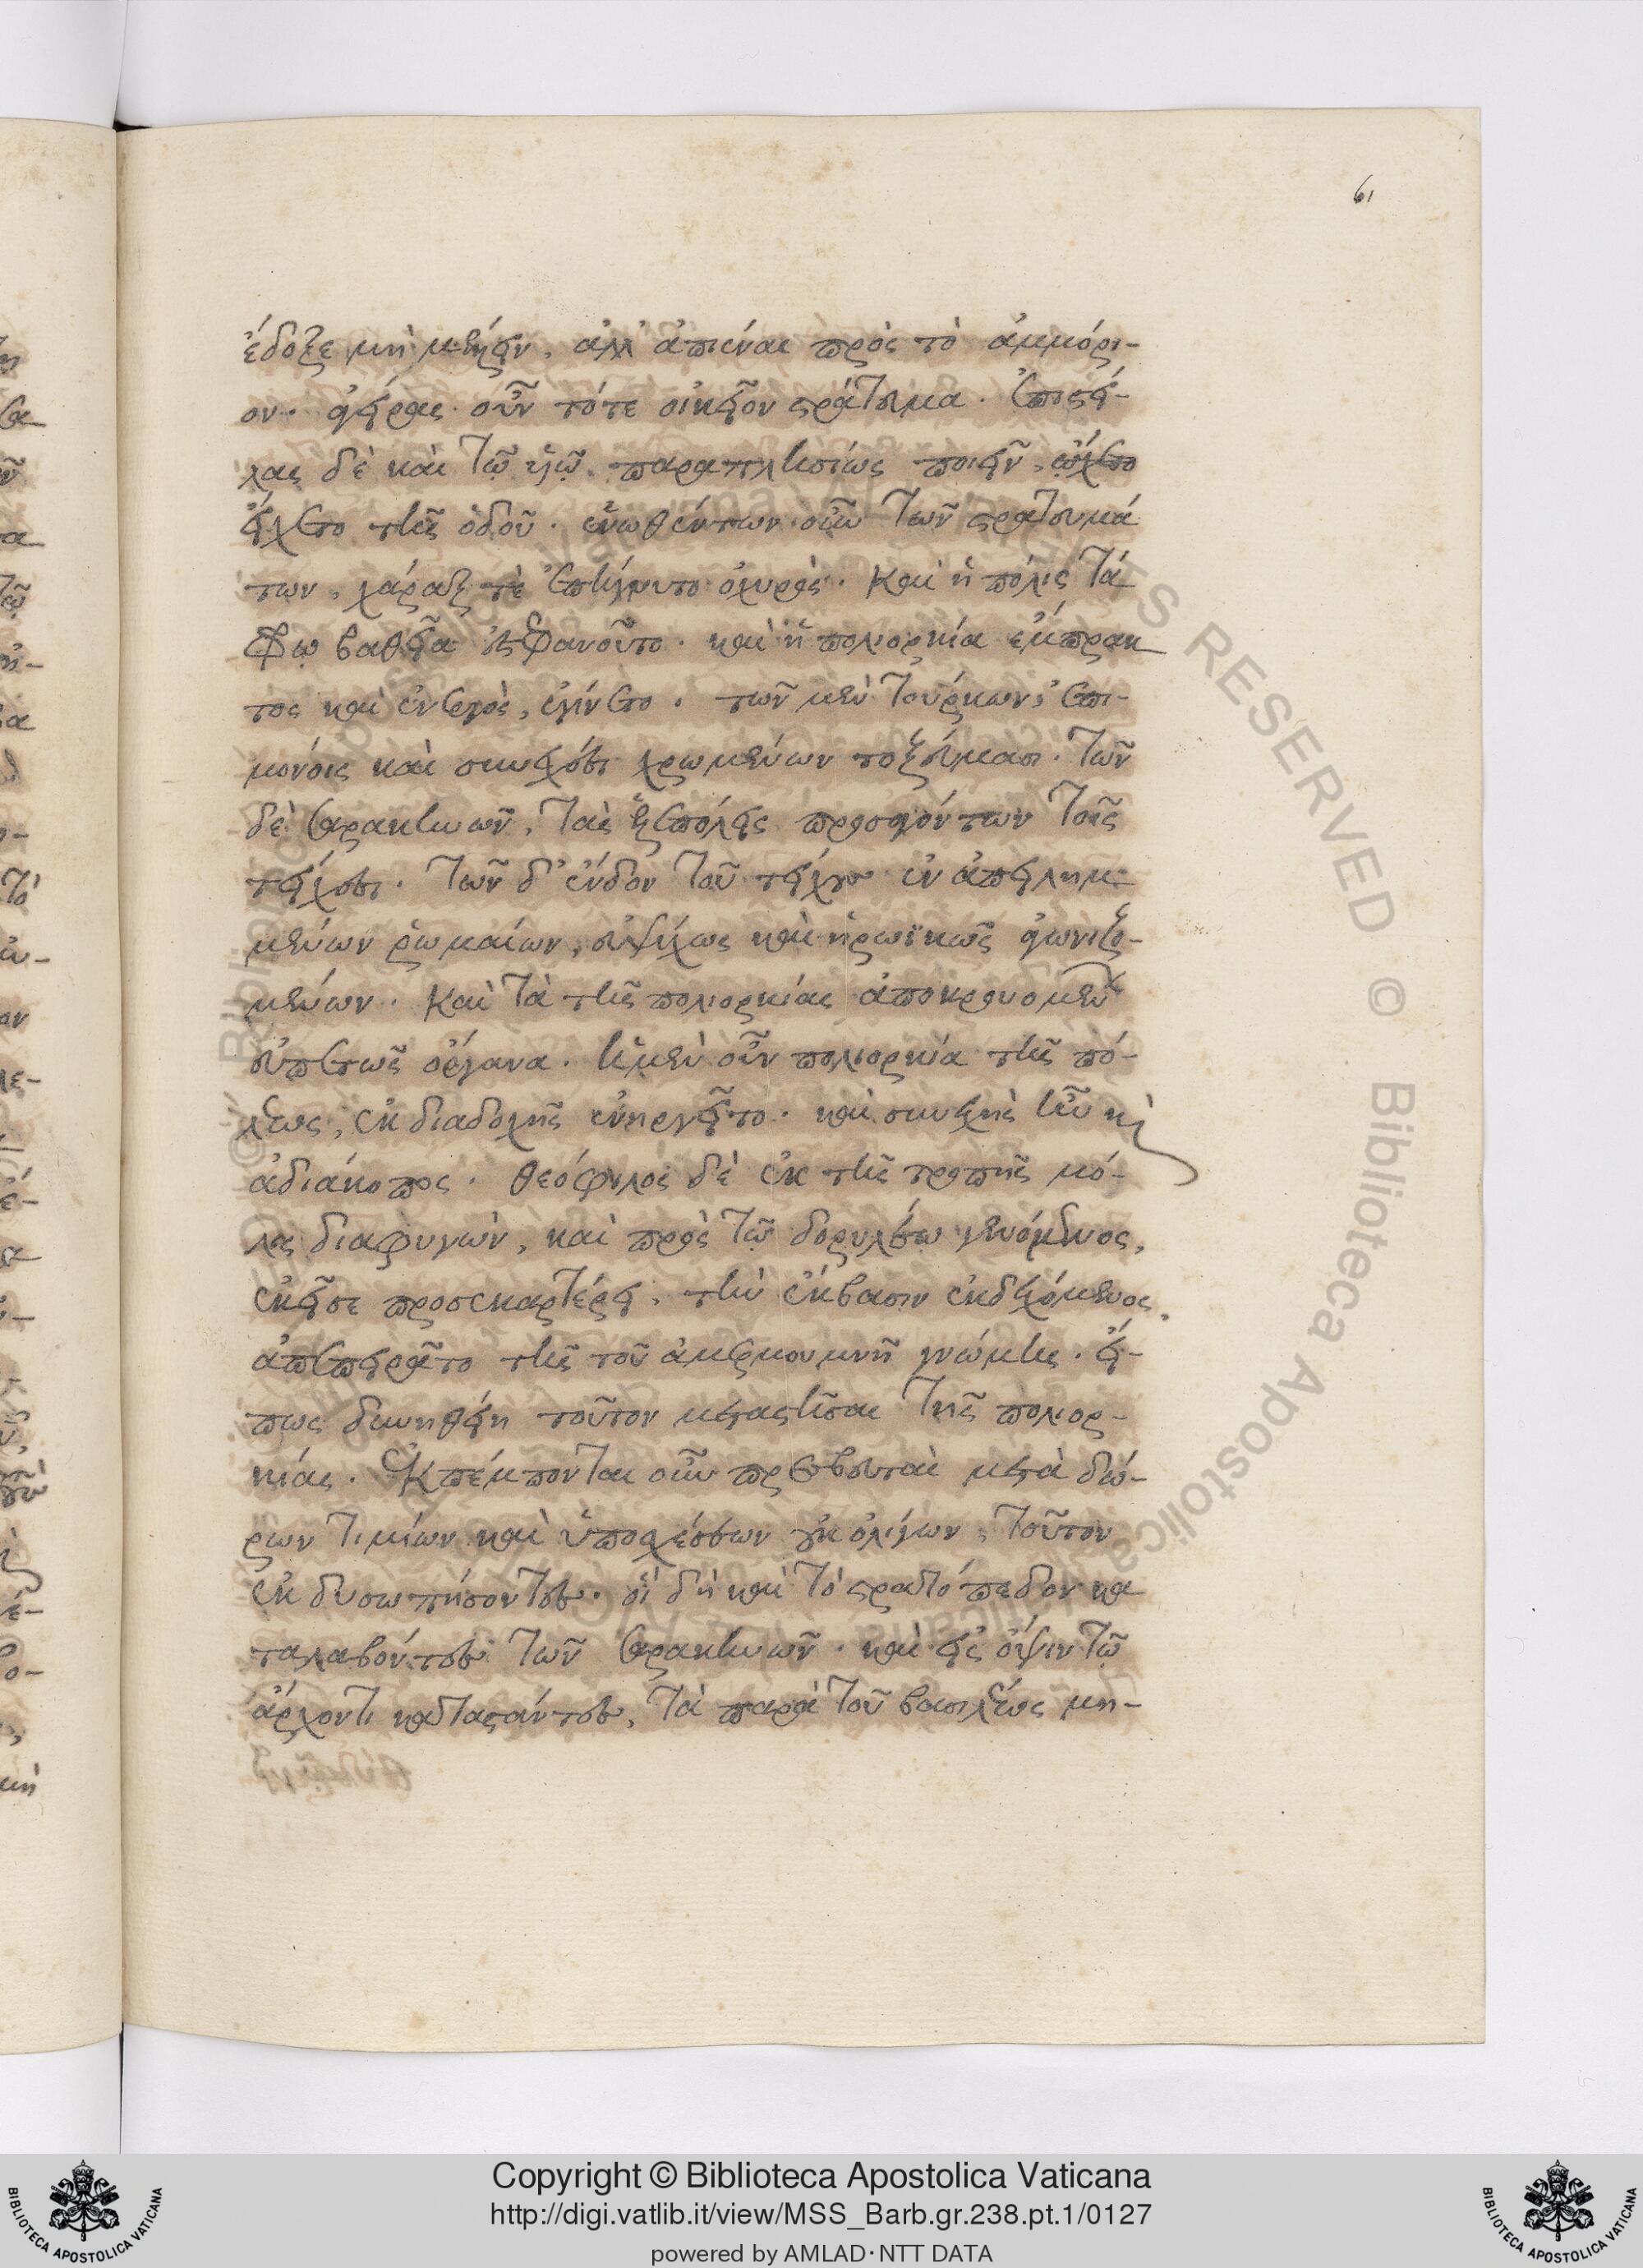 61
ἔδοξε μὴ μένειν, ἀλλ' ἀπιέναι πρὸς τὸ ἀμμόρι-
ον. ἀγείρας οὖν τότε οἰκεῖον στράτευμα. ἐπιστεί-
λας δὲ καὶ τῷ υἱῷ παραπλησίως ποιεῖν,
εἴχετο τῆς ὁδοῦ. ἑνωθέντων οὖν τῶν στρατευμά
των, χάραξ τὲ ἐπήγνυτο ὀχυρὸς. καὶ ἡ πόλις τά
φρω βαθεῖα ἐστεφανοῦτο. καὶ ἡ πολιορκία ἔμπρακ
τος καὶ ἐνεργὸς, ἐγίνετο. τῶν μὲν τούρκων, ἐπι-
μόνοις καὶ συνεχέσι χρωμένων τοξεύμασι. τῶν
δὲ σαρακηνῶν, τὰς ἑλεπόλεις προσαγόντων τοῖς
τείχεσι. τῶν δ' ἔνδον τοῦ τείχους ἐναπειλημ
μένων ῥωμαίων, εὐψύχως καὶ ἡρωϊκῶς ἀγωνιζο-
μένων. καὶ τὰ τῆς πολιορκίας ἀποκρουομένων
εὐπετῶς ὄργανα. ἡ μὲν οὖν πολιορκία τῆς πό-
λεως, ἐκ διαδοχῆς ἐνηργεῖτο. καὶ συνεχὴς ἦν κὶ
ἀδιάκοπος. θεόφιλος δὲ ἐκ τῆς τροπῆς μό-
λις διαφυγὼν, καὶ πρὸς τῷ δορυλέω γενόμενος,
ἐκεῖσε προσεκαρτέρει, τὴν ἔκβασιν ἐκδεχόμενος,
ἀπεπειρᾶτο τῆς τοῦ ἀμερμουμνῆ γνώμης. εἴ-
πως δυνηθείη τοῦτον μεταστῆσαι τῆς πολιορ-
κίας. ἐκπέμπονται οὖν πρεσβευταὶ μετὰ δώ-
ρων τιμίων καὶ ὑποσχέσεων οὐκ ὀλίγων, τοῦτον
ἐκδυσωπήσοντες. οἳ δὴ καὶ τὸ στρατόπεδον κα
ταλαβόντες τῶν σαρακηνῶν. καὶ εἰς ὄψιν τῷ
ἄρχοντι καταστάντες, τὰ παρὰ τοῦ βασιλέως μη-
Copyright © Biblioteca Apostolica Vaticana
http://digi.vatlib.it/view/MSS_Barb.gr.238.pt.1/0127
powered by AMLAD·NTT DATA